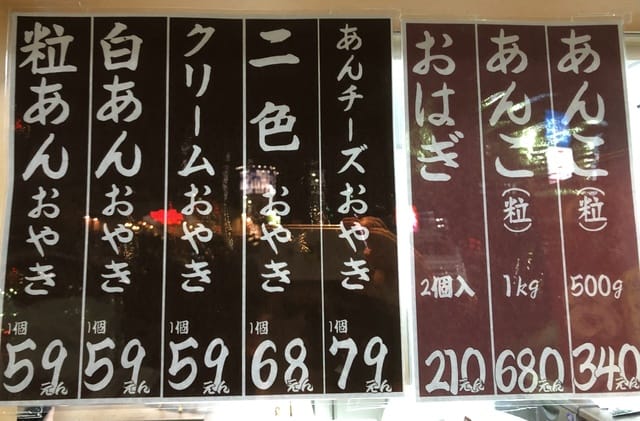 あんこ(粒)
500g
340えん
あんこ(粒)
1kg
680えん
おはぎ
2個入
210えん
あんチーズおやき
1個
79えん
二色おやき
1個
68えん
クリームおやき
1個
59えん
白あんおやき
1個
59えん
粒あんおやき
1個
59えん